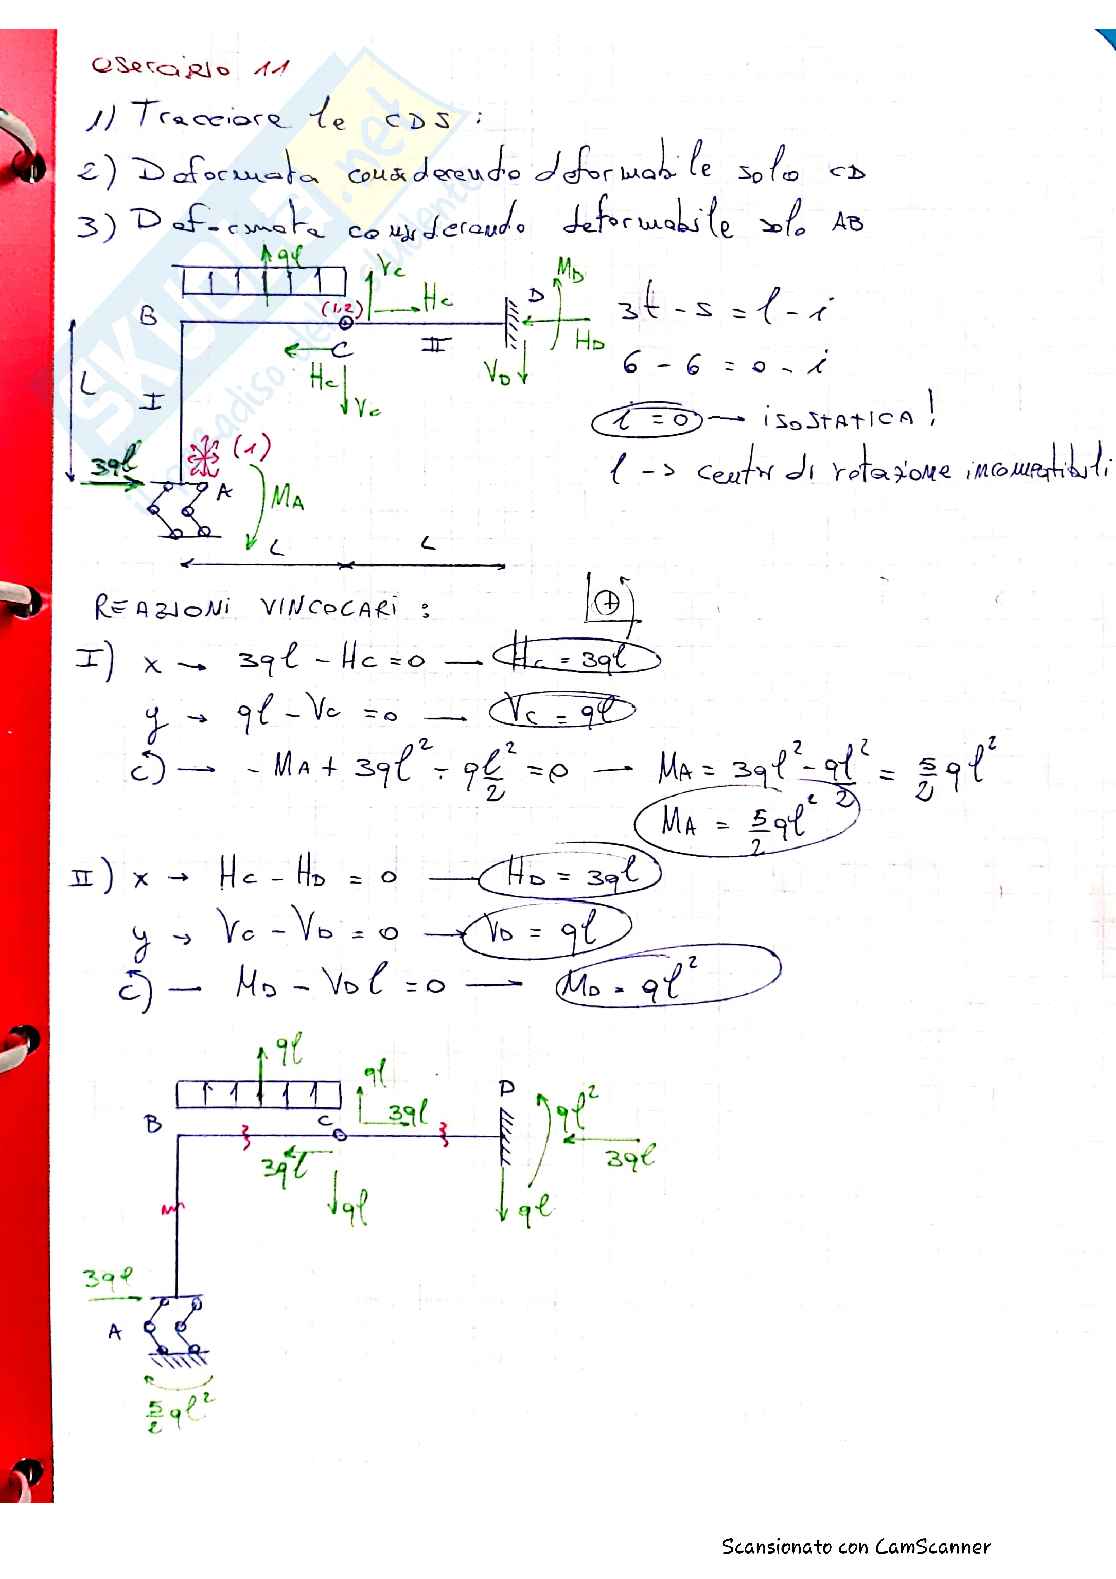 esercizio 11
1) Tracciare le CDS :
2) Deformata considerando deformabile solo CD
3) Deformata considerando deformabile solo AB
ql
Vc
Hc
MD
D
HD
VD
B
(1,2)
C
II
Hc
Vc
L
I
3ql
(1)
A
MA
L
L
3t - s = l - i
6 - 6 = 0 - i
i = 0 → iSOSTATICA!
l -> centri di rotazione incompatibili
REAZIONI VINCOLARI :
+
I) x → 3ql - Hc = 0 — Hc = 3ql
y → ql - Vc = 0 — Vc = ql
C) → - MA + 3ql² - ql²/2 = 0 — MA = 3ql² - ql²/2 = 5/2 ql²
MA = 5/2 ql²
II) x → Hc - HD = 0 — HD = 3ql
y → Vc - VD = 0 → VD = ql
C) — MD - VDl = 0 — MD = ql²
ql
ql
3ql
D
ql²
3ql
ql
B
C
3ql
ql
3ql
A
5/2 ql²
SKUOLA.net
il paradiso dello studente
Scansionato con CamScanner